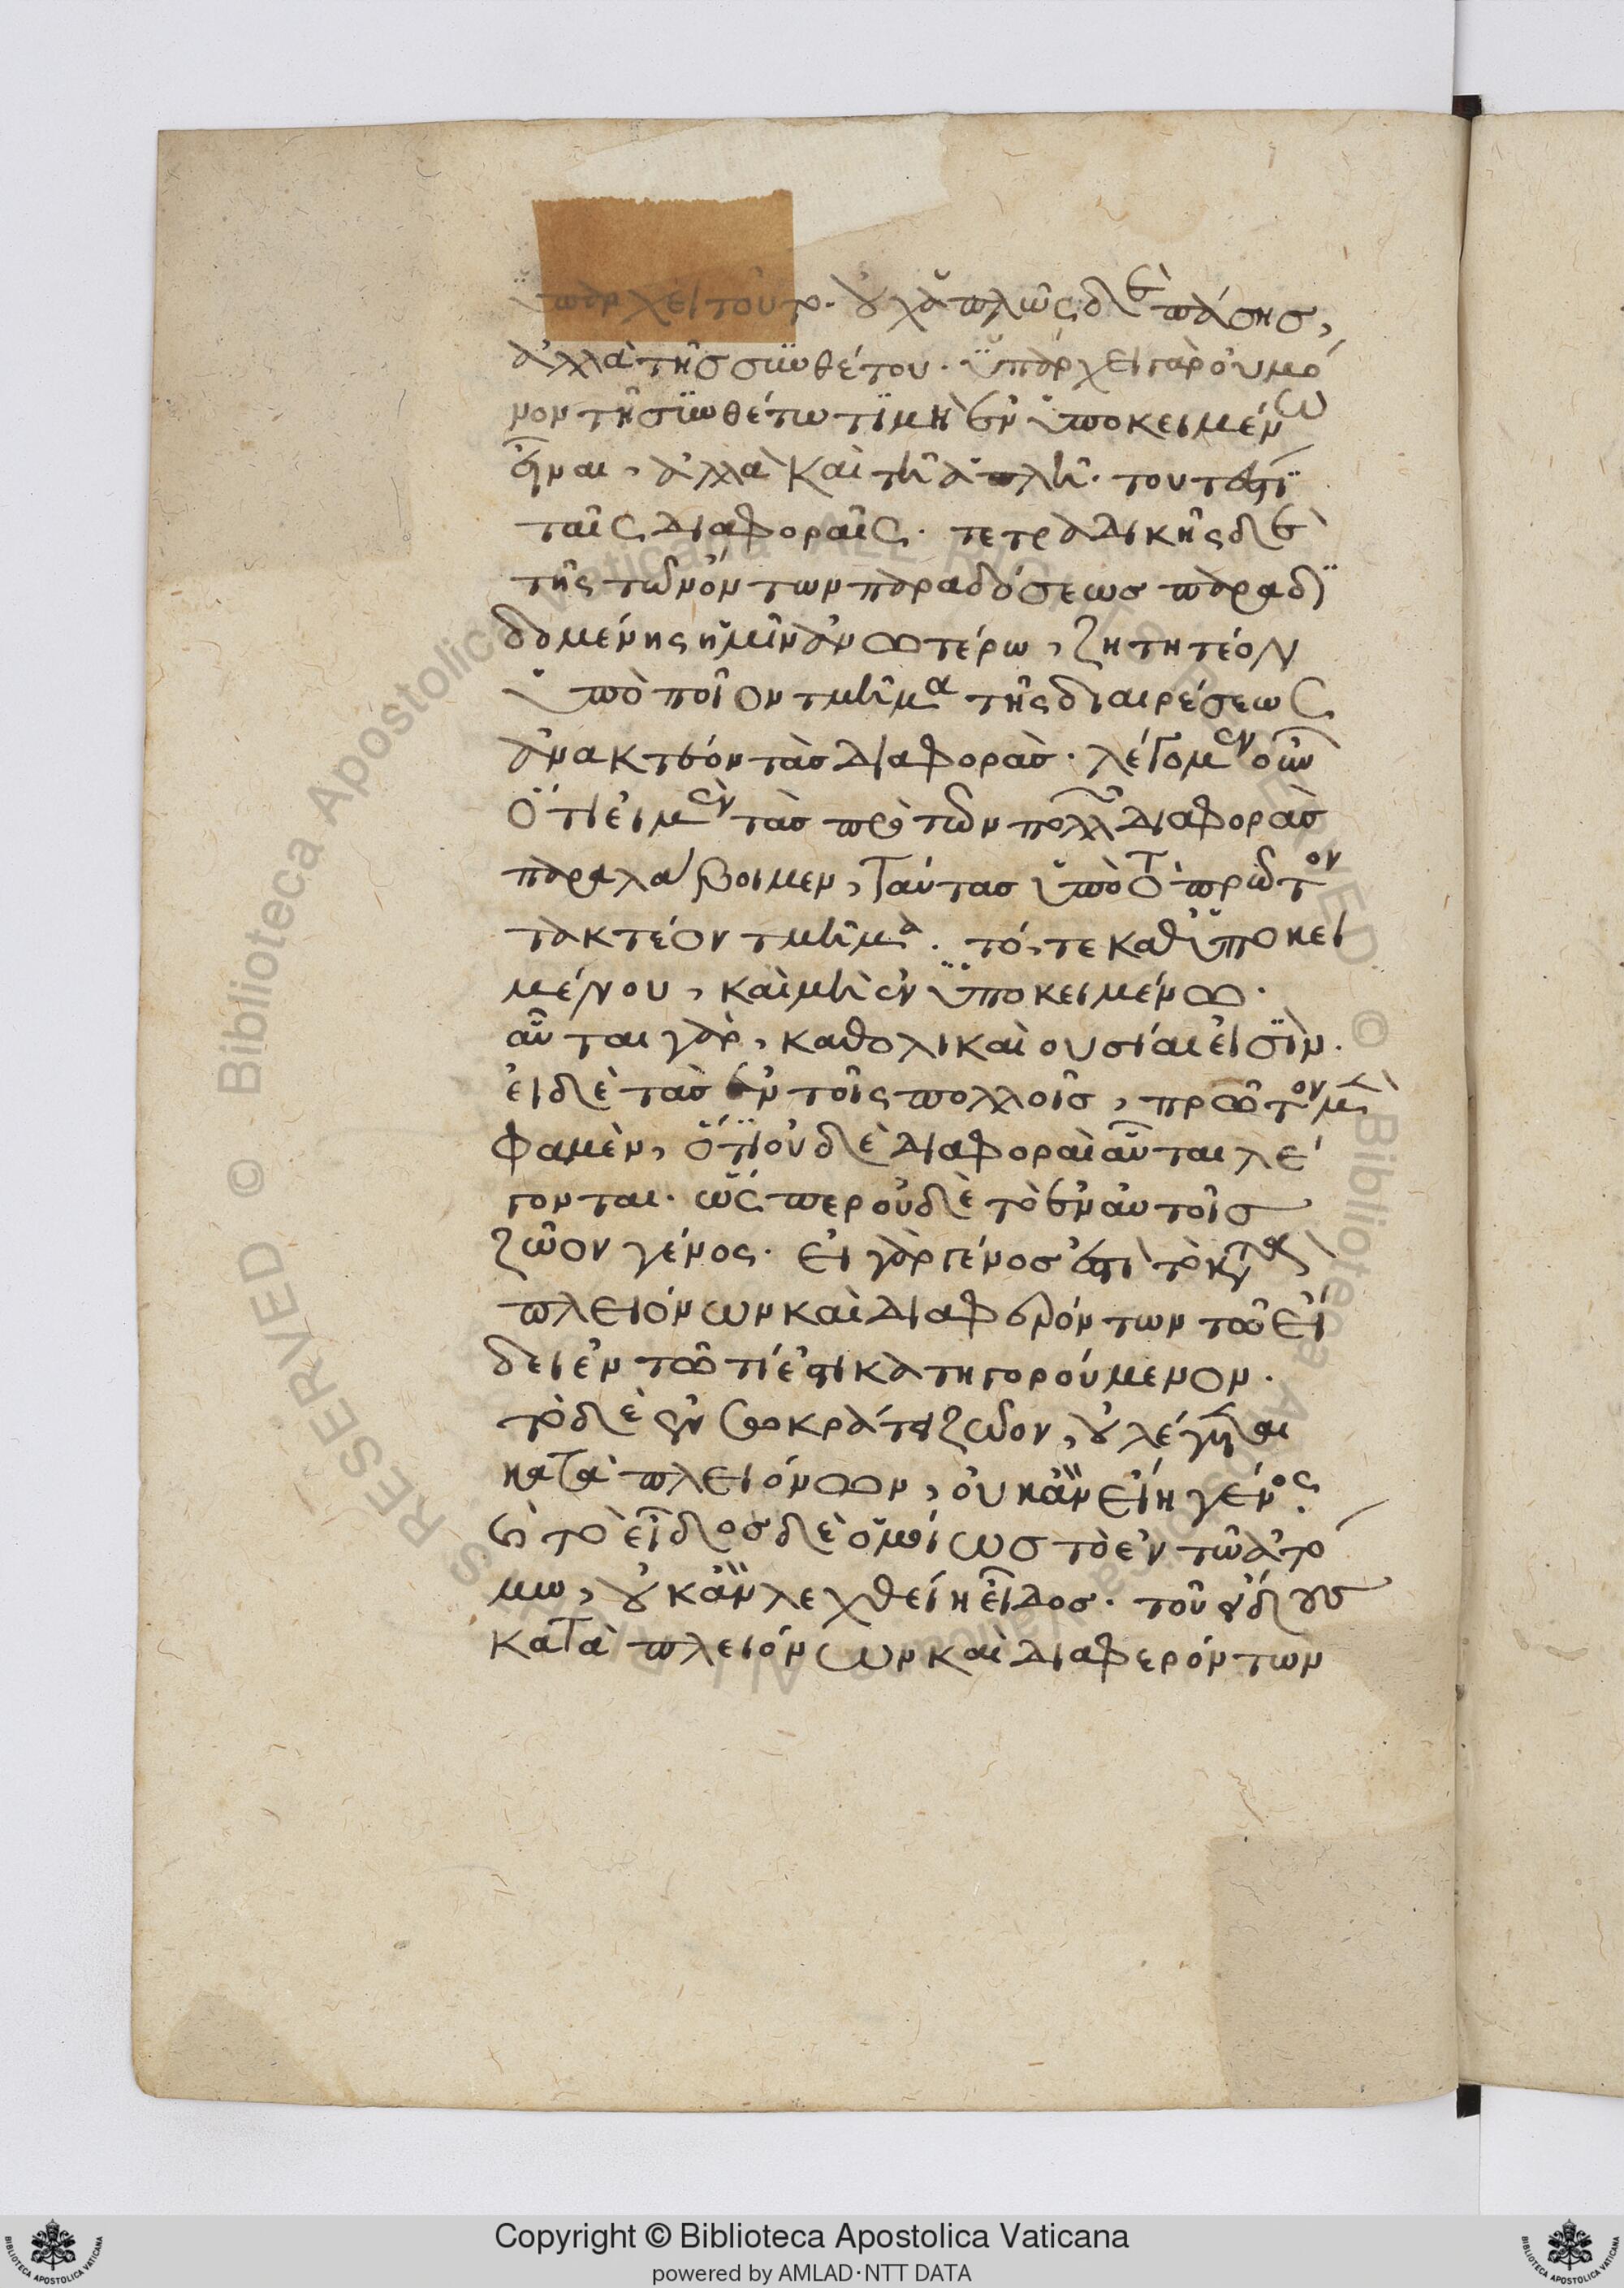 ὑπάρχει τοῦτο. οὐχ ἁπλῶς δὲ πάσης,
ἀλλὰ τῆς συνθέτου. ὑπάρχει γὰρ οὐ μό
νον τῇ συνθέτω τὸ μὴ ἐν ὑποκειμένω
εἶναι, ἀλλὰ καὶ τῆ ἁπλῆ. τουτέστι
ταῖς διαφοραῖς. τετραδικῆς δὲ
τῆς τῶν ὄντων παραδόσεως παραδι
δομένης ἡμῖν ἀνωτέρω, ζητητέον
ὑπὸ ποῖον τμῆμα τῆς διαιρέσεως
ἀνακτέον τὰς διαφοράς. λέγομεν οὖν
ὅτι εἰ μὲν τὰς πρὸ τῶν πολλῶν διαφορὰς
παραλάβοιμεν, ταύτας ὑπὸ τὸ πρῶτον
τακτέον τμῆμα. τό, τε καθ ὑποκει
μένου, καὶ μὴ ἐν ὑποκειμένω.
αὗται γὰρ, καθολικαὶ οὐσίαι εἰσὶν.
εἰ δὲ τὰς ἐν τοῖς πολλοῖς, πρῶτον μὲν
φαμὲν, ὅτι οὐδὲ διαφοραὶ αὗται λέ
γονται. ὥσπερ οὐδὲ τὸ ἐν αὐτοῖς
ζῶον γένος. εἰ γὰρ γένος ἐστὶ τὸ κατὰ
πλειόνων καὶ διαφερόντων τῶ εἴ
δει ἐν τῶ τί ἐστι κατηγορούμενον.
τὸ δὲ ἐν σωκράτει ζῶον, οὐ λέγεται
κατὰ πλειόνων, οὐκ ἂν εἴη γένος.
τὸ εἶδος δὲ ὁμοίως τὸ ἐν τῶ ἀτό
μω, οὐκ ἂν λεχθείη εἶδος. τοῦ εἴδους
κατὰ πλειόνων καὶ διαφερόντων
Copyright © Biblioteca Apostolica Vaticana
powered by AMLAD·NTT DATA